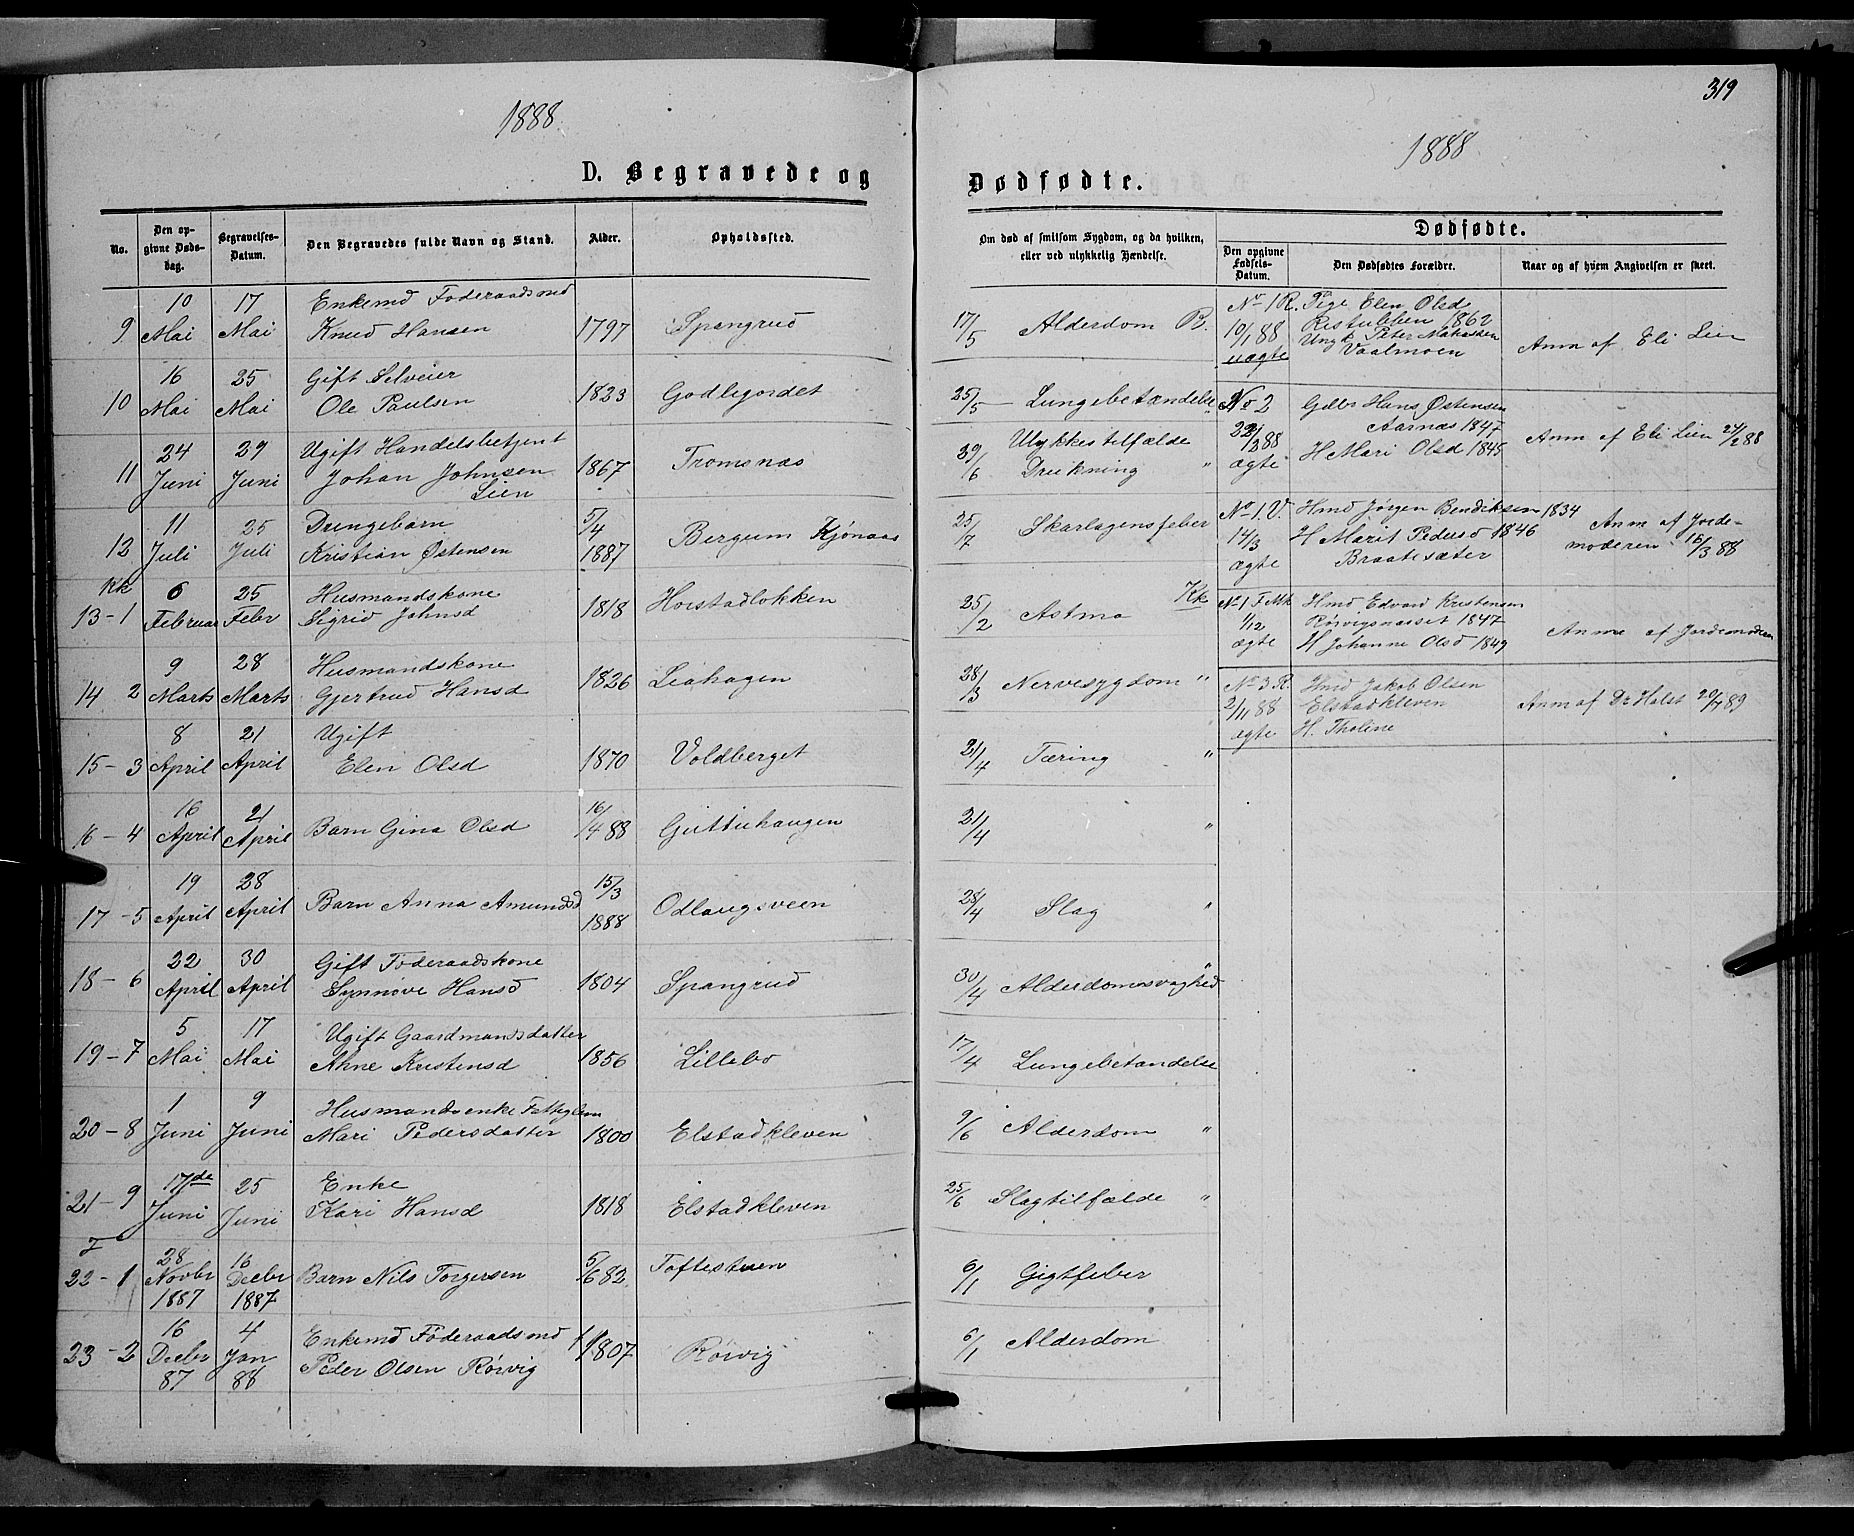 319
1888
1888
D. Begravede og
Dødfødte.
No.
Den op-
givne Døds-
dag.
Begravelses-
Datum.
Den Begravedes fulde Navn og Stand.
Alder.
Opholdssted.
Om død af smitsom Sygdom, og da hvilken,
eller ved ulykkelig Hændelse.
Dødfødte.
Den opgivne
Fødsels-
Datum.
Den Dødfødtes Forældre.
Naar og af hvem Angivelsen er skeet.
9 10 Mai 17 Mai Enkemd Føderaadsmd
Knud Hansen 1797 Spangrud 17/5 Alderdom B.
10 16 Mai 25 Mai Gift Selveier
Ole Paulsen 1823 Godligordet 25/5 Lungebetændelse "
11 24 Juni 29 Juni Ugift Handelsbetjent
Johan Johnsen
Lien 1867 Tromsnæs 29/6 Ulykkestilfælde
Drukning "
12 11 Juli 25 Juli Drengebarn
Kristian Østensen 5/4 1887 Bergum Kjønaas 25/7 Skarlagensfeber
Kk
13-1 6 Februar 25 Febr Husmandskone
Sigrid Johnsd 1818 Hoistadløkken 25/2 Astma Kk
14 2 9 Marts 28 Marts Husmandskone
Gjertrud Hansd 1826 Liahagen 28/3 Nervesygdom "
15-3 8 April 21 April Ugift
Elin Olsd 1870 Voldberget 21/4 Tæring "
16-4 16 April 21 April Barn Gina Olsd 16/4 88 Guttuhaugen 21/4 "
17-5 19 April 28 April Barn Anna Amundsd 15/3 1888 Odlaugsveen 28/4 Slag "
18-6 22 April 30 April Gift Føderaadskone
Synnøve Hansd 1804 Spangrud 30/4 Alderdomssvaghed "
19-7 5 Mai 17 Mai Ugift Gaardmandsdatter
Anne Kristensd 1856 Lillebo 17/4 Lungebetændelse
20-8 1 Juni 9 Juni Husmandsenke Fattiglem
Mari Pedersdatter 1800 Elstadkleven 9/6 Alderdom "
21-9 17de Juni 25 Juni Enke
Kari Hansd 1818 Elstadkleven 25/6 Slagtilfælde "
22-1 28 Novbr 1887 16 Decbr 1887 Barn Nils Torgersen 5/6 82 Toftestuen 6/1 Gigtfeber
23-2 16 Decbr 87 4 Jan 88 Enkemd Føderaadsmd
Peder Olsen Rörvig 1807 Rörvig 6/1 Alderdom
No 1 R. Pige Elen Olsd
10/1 88 1862
uægte Ungk Peter
Vaalmoen
Anm af Eli Lien
No 2 Gdbr Hans Østensen
Aarnæs 1847
22/2 88
ægte H Mari Olsd 1845
Anm af Eli Lien 24/2 88
No 1. V. Hmd Jørgen Bendiksen 1834
14/3 H Marit Pedersd 1846
ægte Braatesæter
Anm af Jorde-
moderen 16/3 88
No 1 F. Mk Hmd Edvard Kristensen
1/12 Rörvigsnæsset 1847
ægte H Johanne Olsd 1849
Anm af Jordemoderen
No 3 R. Hmd Jakob Olsen
2/11 88 Elstadkleven
ægte H. Tholine
Anm af Dr Holst 20/1 89